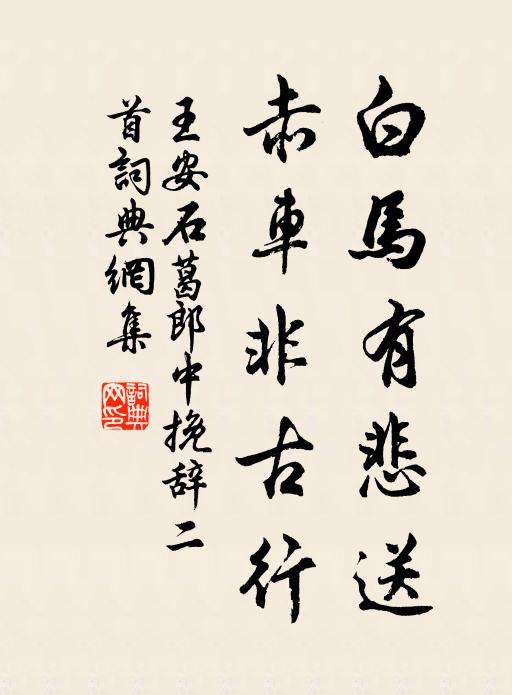 白馬有悲送
赤車非古行
王安石葛郎中挽辞二
首詞典網集
詞典
网印